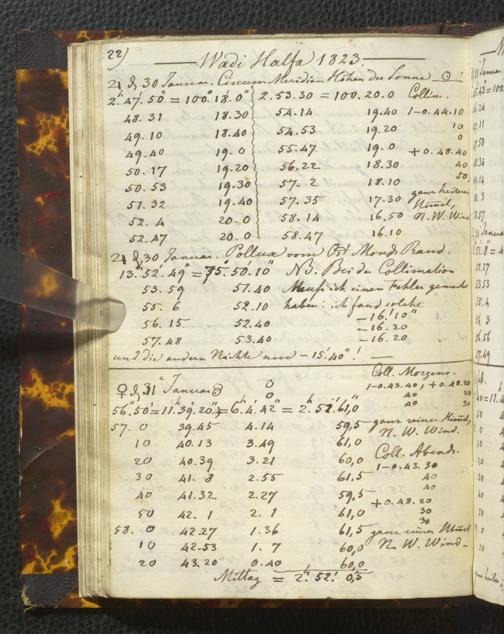 22)
Wadi Halfa 1823.
♃ d. 30 Januar. Circum Meridian Höhen der Sonne ☉
2.47.50 = 100.18.0 2.53.30 = 100.20.0 Collim.
48.31 18.30 54.14 19.40 1-0.44.10
49.10 18.40 54.53 19.20 10
49.40 19.0 55.47 19.0 0
+0.48.40
50.17 19.20 56.22 18.30 40
50.53 19.30 57.2 18.10 50
51.32 19.40 57.35 17.30 ganz heiterer
52.4 20.0 58.14 16.50 Himmel,
52.47 20.0 58.47 16.10 N. W. Wind
♃ d. 30 Januar. Pollux vom Ost Mond Rand.
13.52.49 = 75.50.10 NB. Bei der Collimation
53.59 51.40 Muss ich einen Fehler gemacht
55.6 52.10 haben: ich fand solche
56.15 52.40 -16'10"
57.48 53.40 -16.20
-16.20
und die andern Nächte nur -15'40"!
♀ d. 31 Januar Coll. Morgens.
1-0.43.40, +0.48.20
40 30
40 30
56.50 = 11.39.20 = 6.4.42 = 2.52.61,0
57.0 39.45 4.14 59,5 ganz reiner Himmel,
10 40.13 3.49 61,0 N. W. Wind.
20 40.39 3.21 60,0 Coll. Abends.
30 41.8 2.55 61,5 1-0.43.30
40
40 41.32 2.27 59,5 40
50 42.1 2.1 61,0 +0.48.20
30
30
58.0 42.27 1.36 61,5 ganz reiner Himmel
10 42.53 1.7 60,0 N. W. Wind
20 43.20 0.40 60,0
Mittag = 2.52.0,5